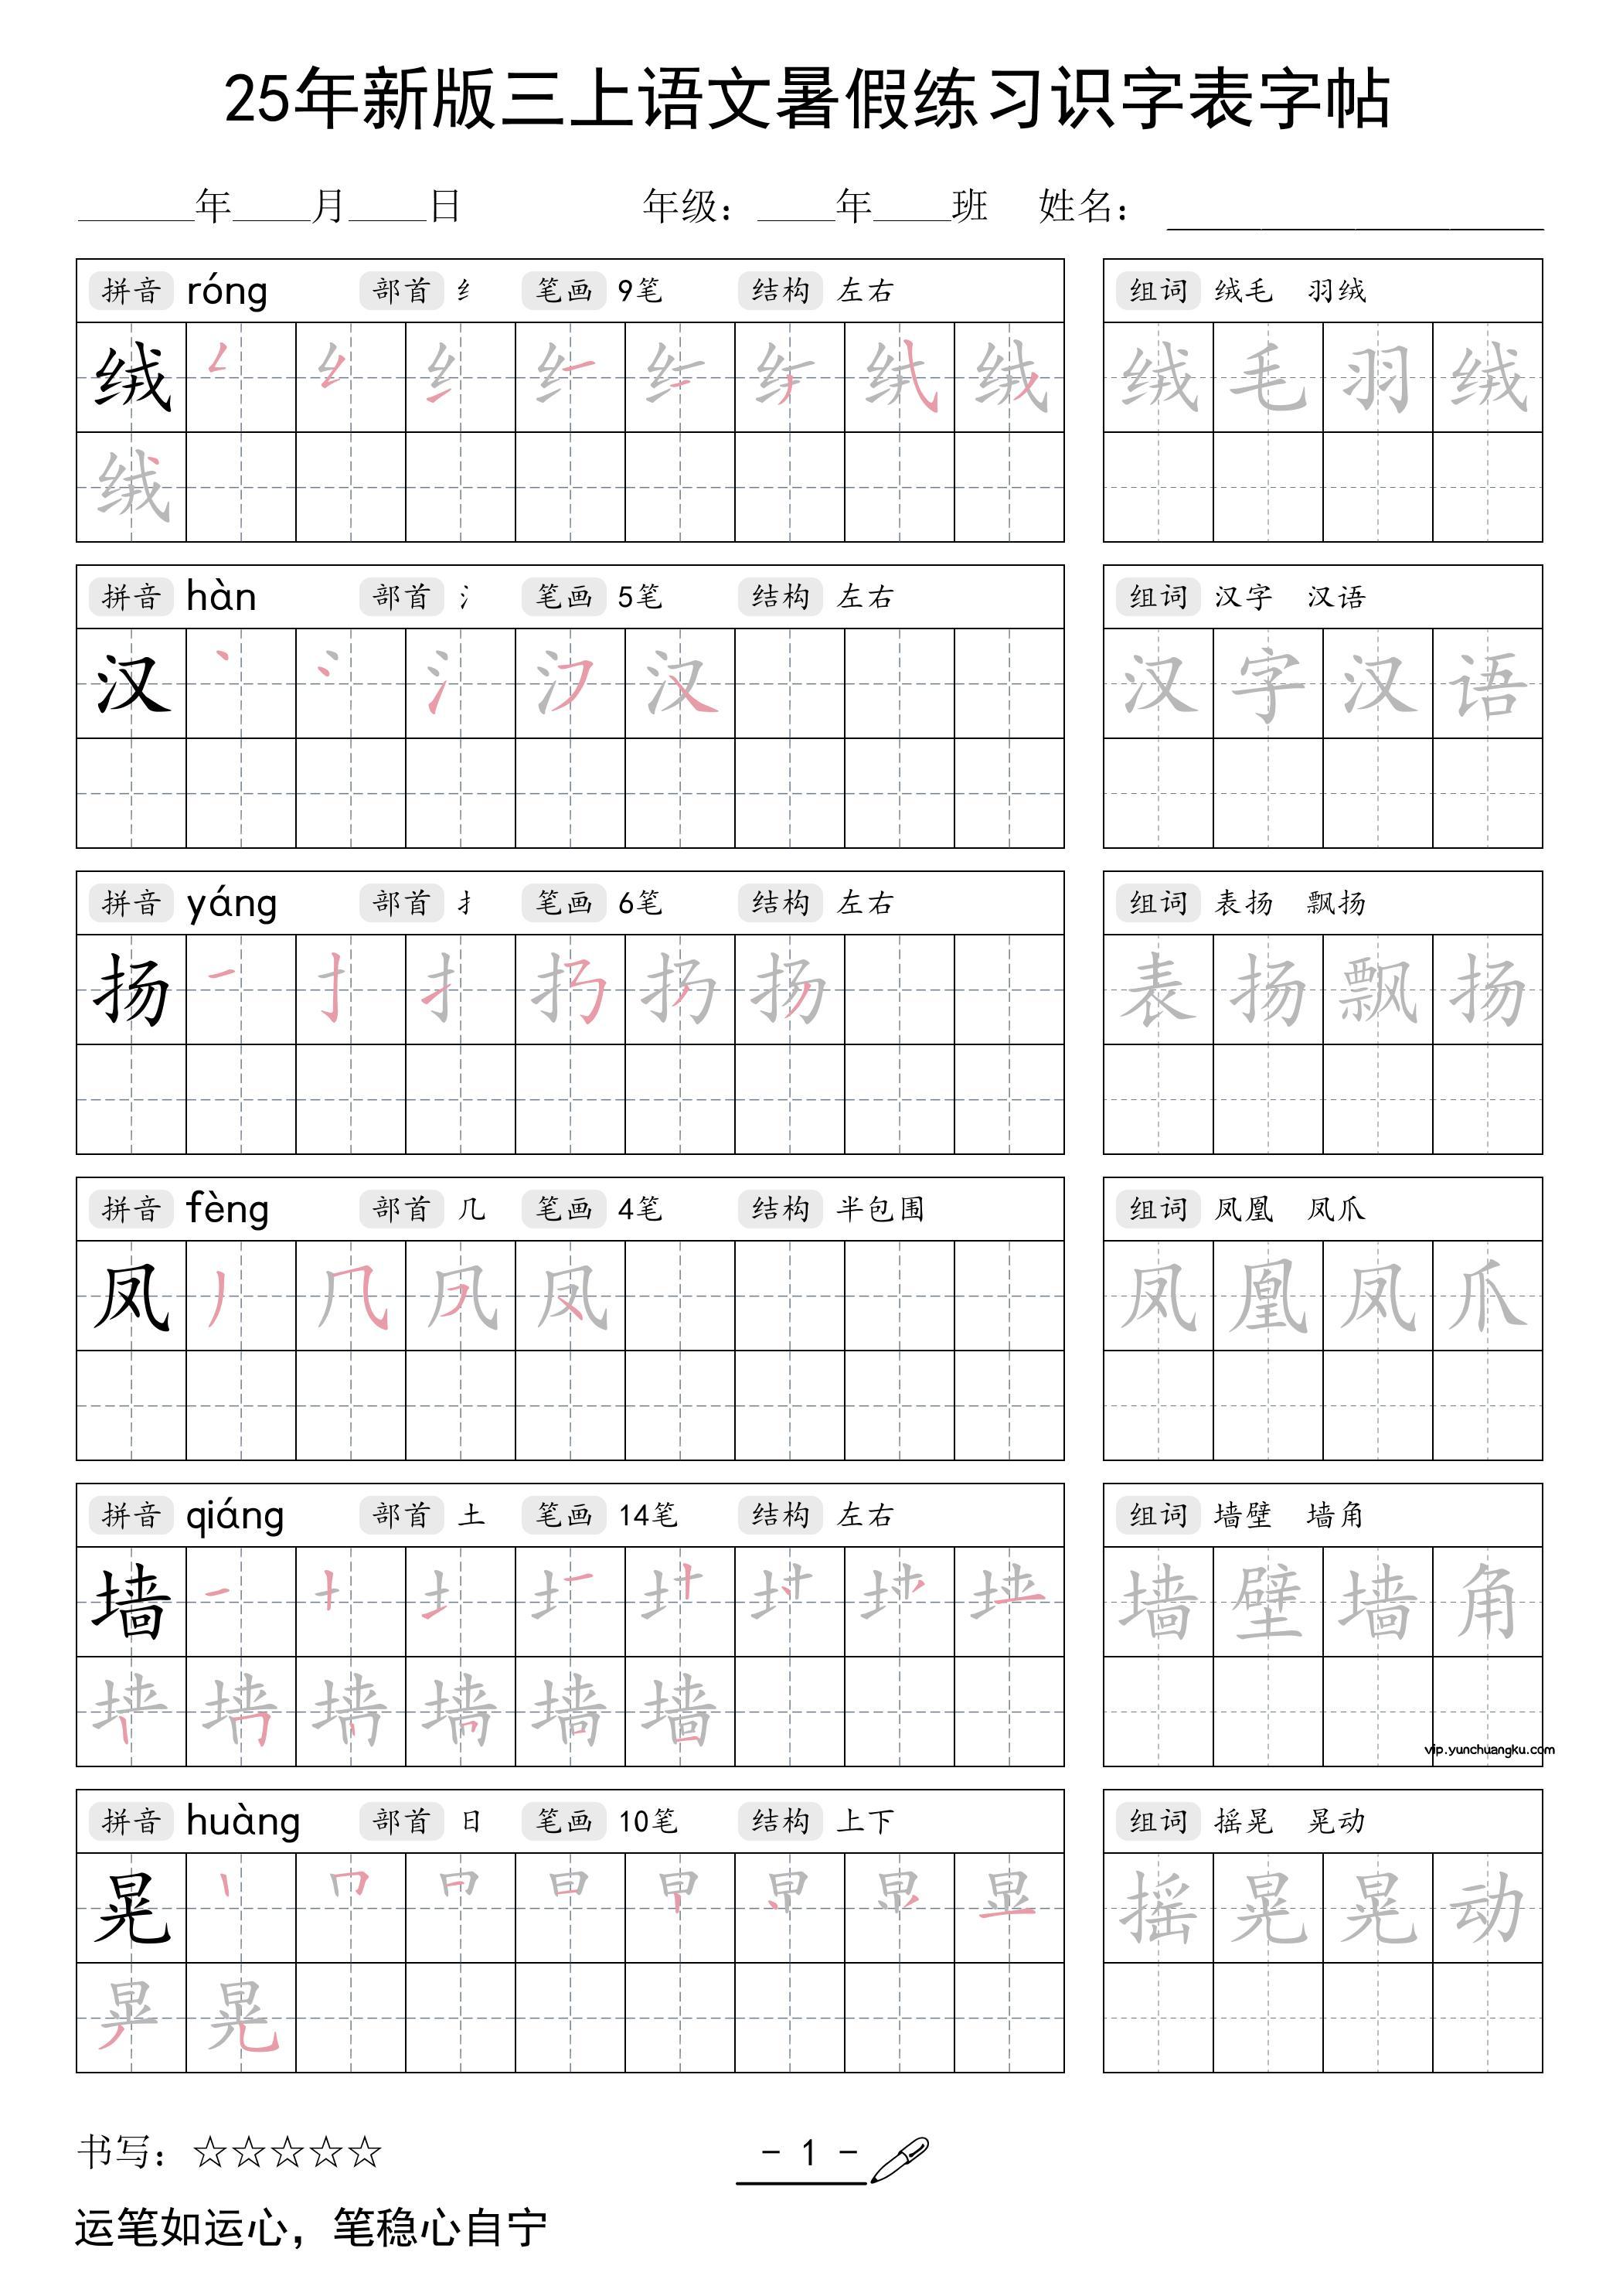 25年新版三上语文暑假练习识字表字帖
____年____月____日 年级：____年____班 姓名：________
拼音 róng 部首 纟 笔画 9笔 结构 左右 组词 绒毛 羽绒
绒 绒毛羽绒
绒
拼音 hàn 部首 氵 笔画 5笔 结构 左右 组词 汉字 汉语
汉 汉字汉语
拼音 yáng 部首 扌 笔画 6笔 结构 左右 组词 表扬 飘扬
扬 扬 表扬飘扬
拼音 fèng 部首 几 笔画 4笔 结构 半包围 组词 凤凰 凤爪
凤 凤 凤凰凤爪
拼音 qiáng 部首 土 笔画 14笔 结构 左右 组词 墙壁 墙角
墙 墙壁墙角
墙
vip.yunchuangku.com
拼音 huàng 部首 日 笔画 10笔 结构 上下 组词 摇晃 晃动
晃 摇晃晃动
晃
书写：☆☆☆☆☆ - 1 -
运笔如运心，笔稳心自宁